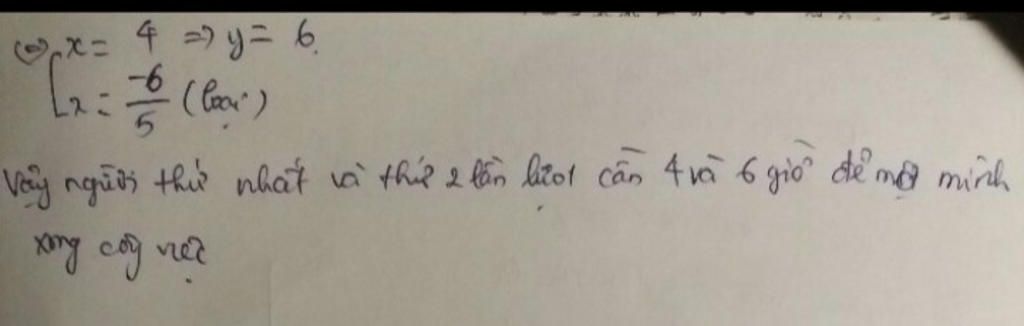 (=) [x = 4 => y = 6.
x = -6/5 (loại)
Vậy người thứ nhất và thứ 2 lần lượt cần 4 và 6 giờ để một mình
xong công việc